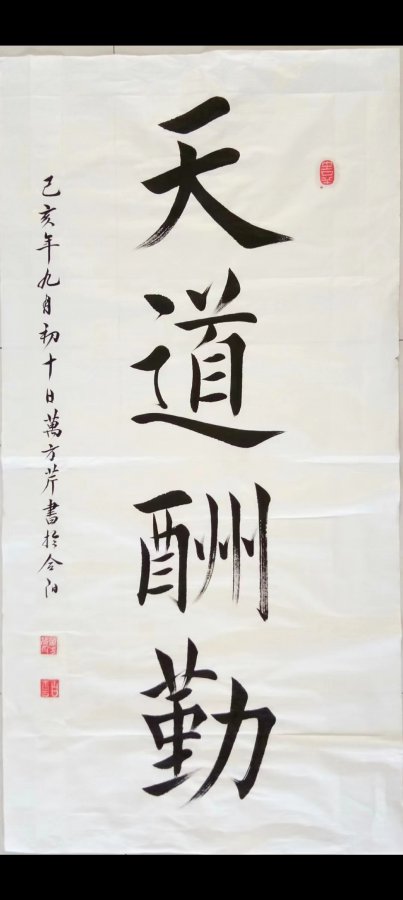 天道酬勤
己亥年九月初十日萬方芹書於合阳